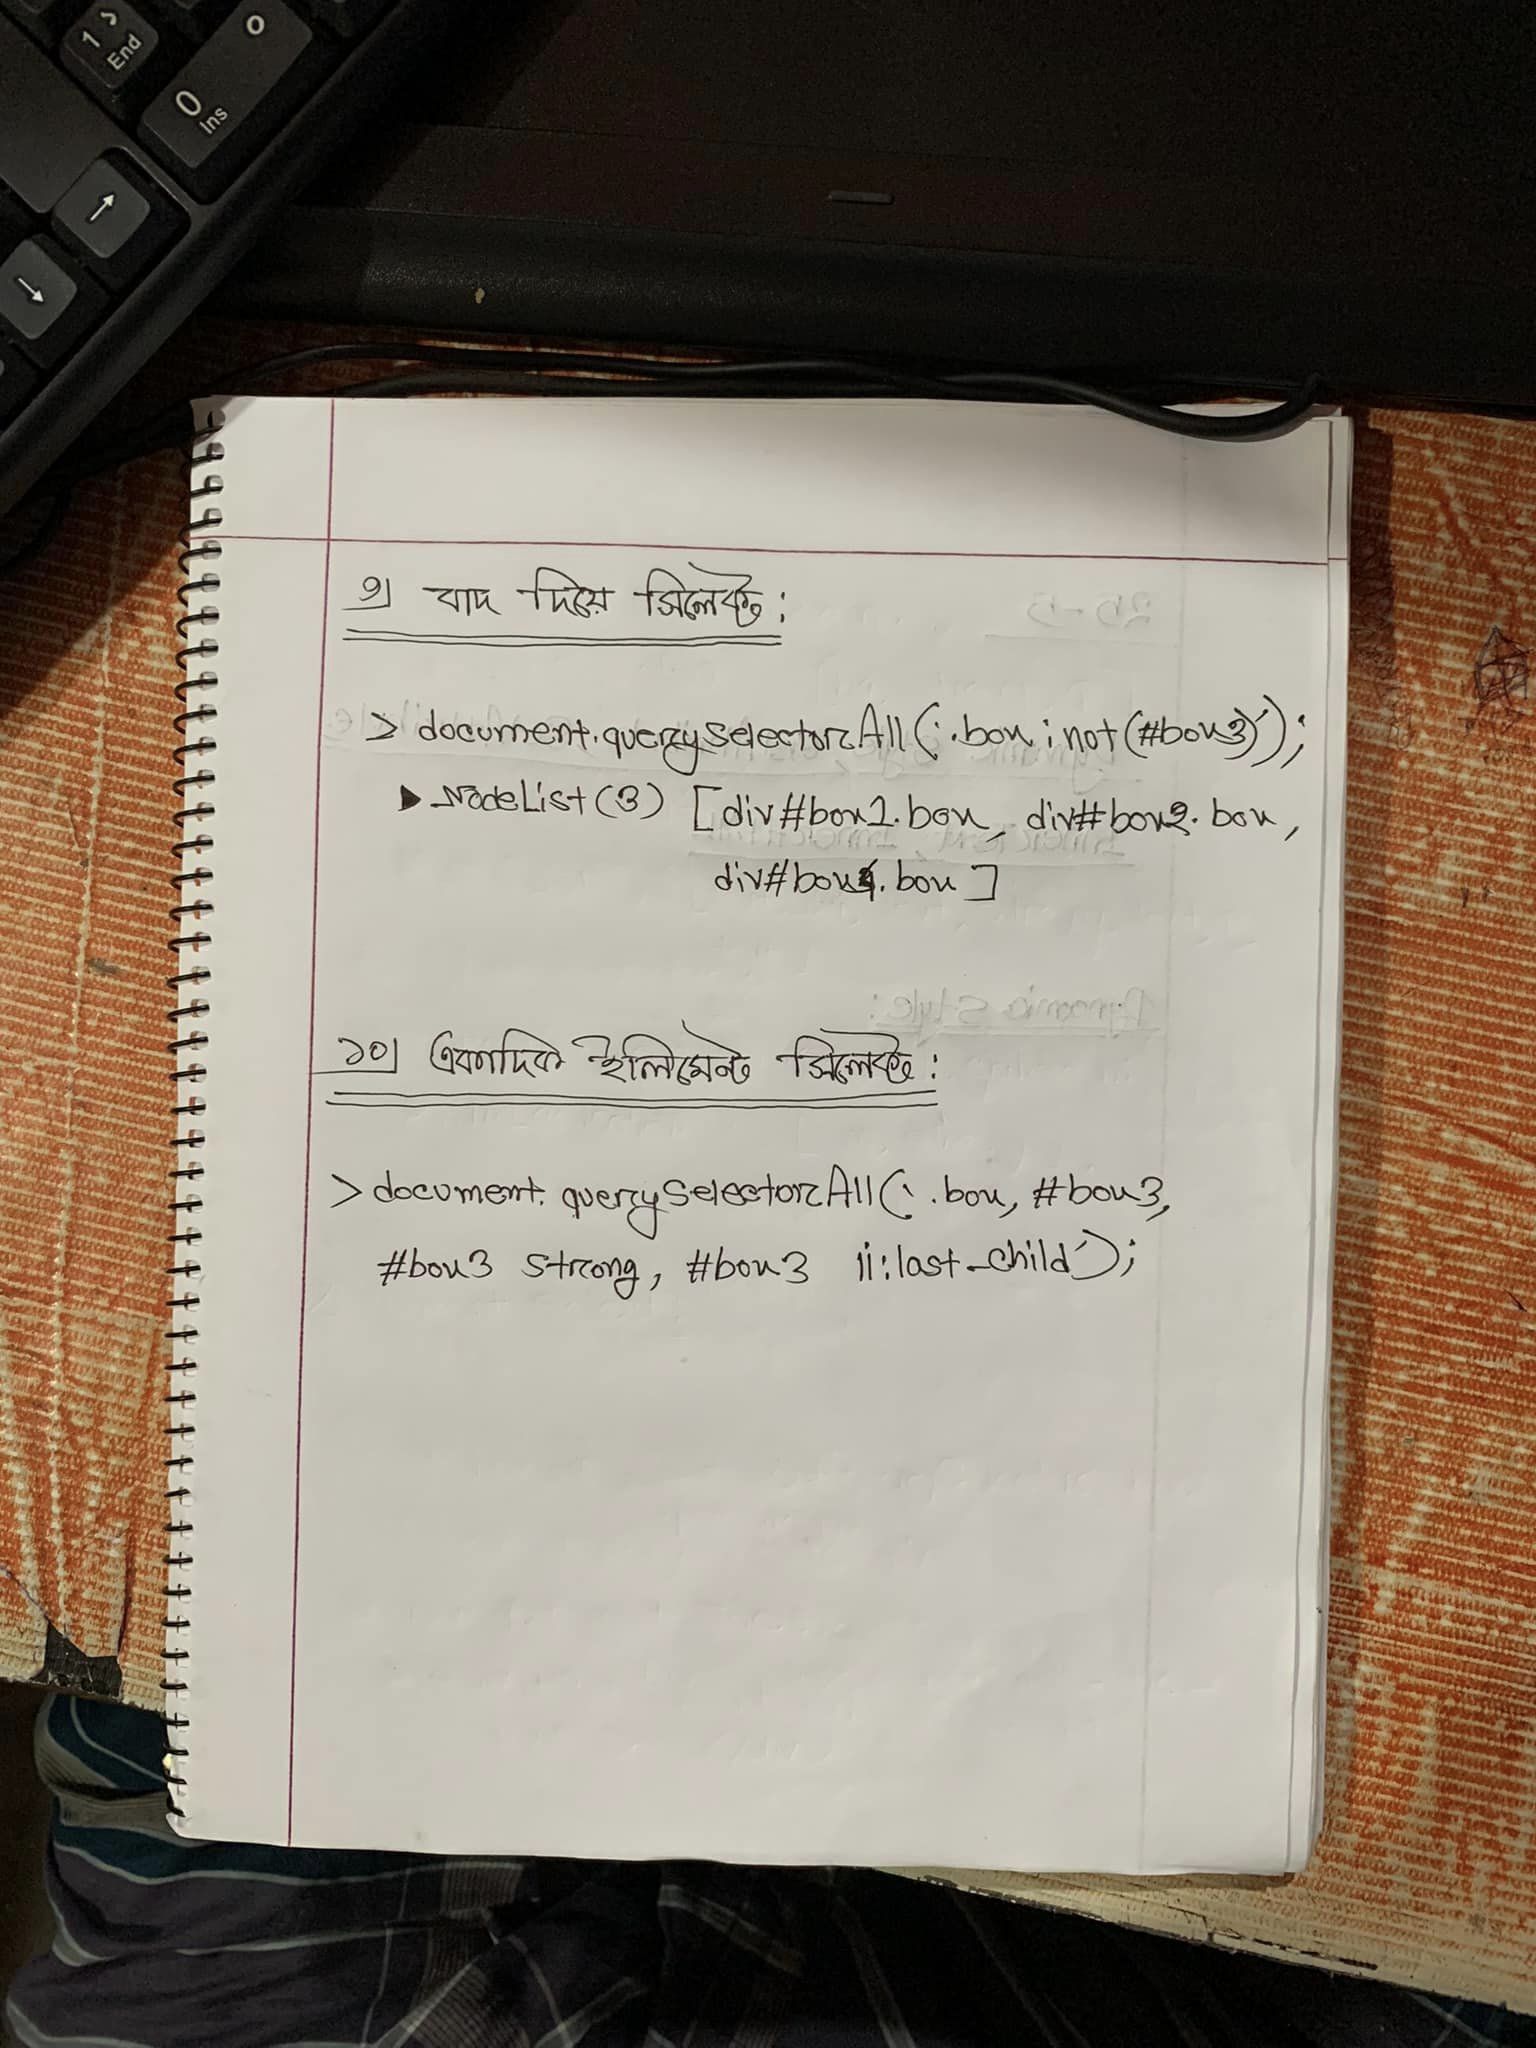 1 End
0 Ins
৯। বাদ দিয়ে সিলেক্ট :
> document.querySelectorAll('.box:not(#box3)');
▶ NodeList(3) [div#box1.box, div#box2.box,
div#box4.box]
১০। একাদিক ইলিমেন্ট সিলেক্ট :
> document.querySelectorAll('.box, #box3,
#box3 strong, #box3 li:last-child');